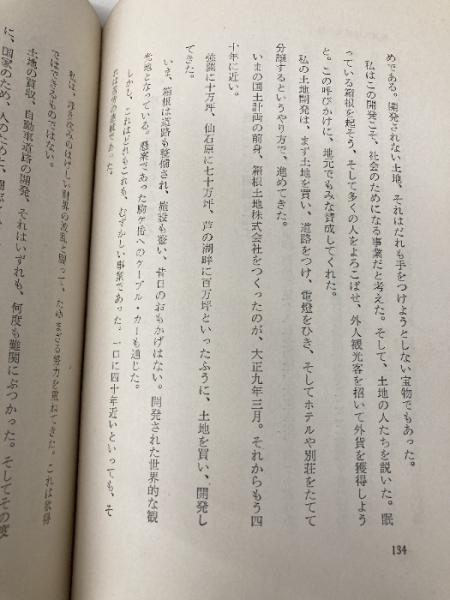 めである。開発されない土地、それはだれも手をつけようとしない宝物でもあった。
私はこの開発こそ、社会のためになる事業だと考えた。そして、土地の人たちを説いた。眠
っている箱根を起そう、そして多くの人をよろこばせ、外人観光客を招いて外貨を獲得しよう
と。この呼びかけに、地元でもみな賛成してくれた。
私の土地開発は、まず土地を買い、道路をつけ、電燈をひき、そしてホテルや別荘をたてて
分譲するというやり方で、進めてきた。
いまの国土計画の前身、箱根土地株式会社をつくったのが、大正九年三月。それからもう四
十年に近い。
強羅に十万坪、仙石原に七十万坪、芦の湖畔に百万坪といったふうに、土地を買い、開発し
てきた。
いま、箱根は道路も整備され、施設も整い、昔日のおもかげはない。開発された世界的な観
光地となっている。懸案であった駒ケ岳へのケーブル・カーも通じた。
しかし、これはどれもこれも、むずかしい事業であった。一口に四十年近いといっても、そ
れは苦労の連続であった。
私は、浮き沈みのはげしい財界の波乱と闘って、たゆまざる努力を重ねてきた。これは
ではできるものではない。
土地の買収、自動車道路の開発、それはいずれも、何度も難関にぶつかった。そしてその度
に、国家のため、人のために、
134